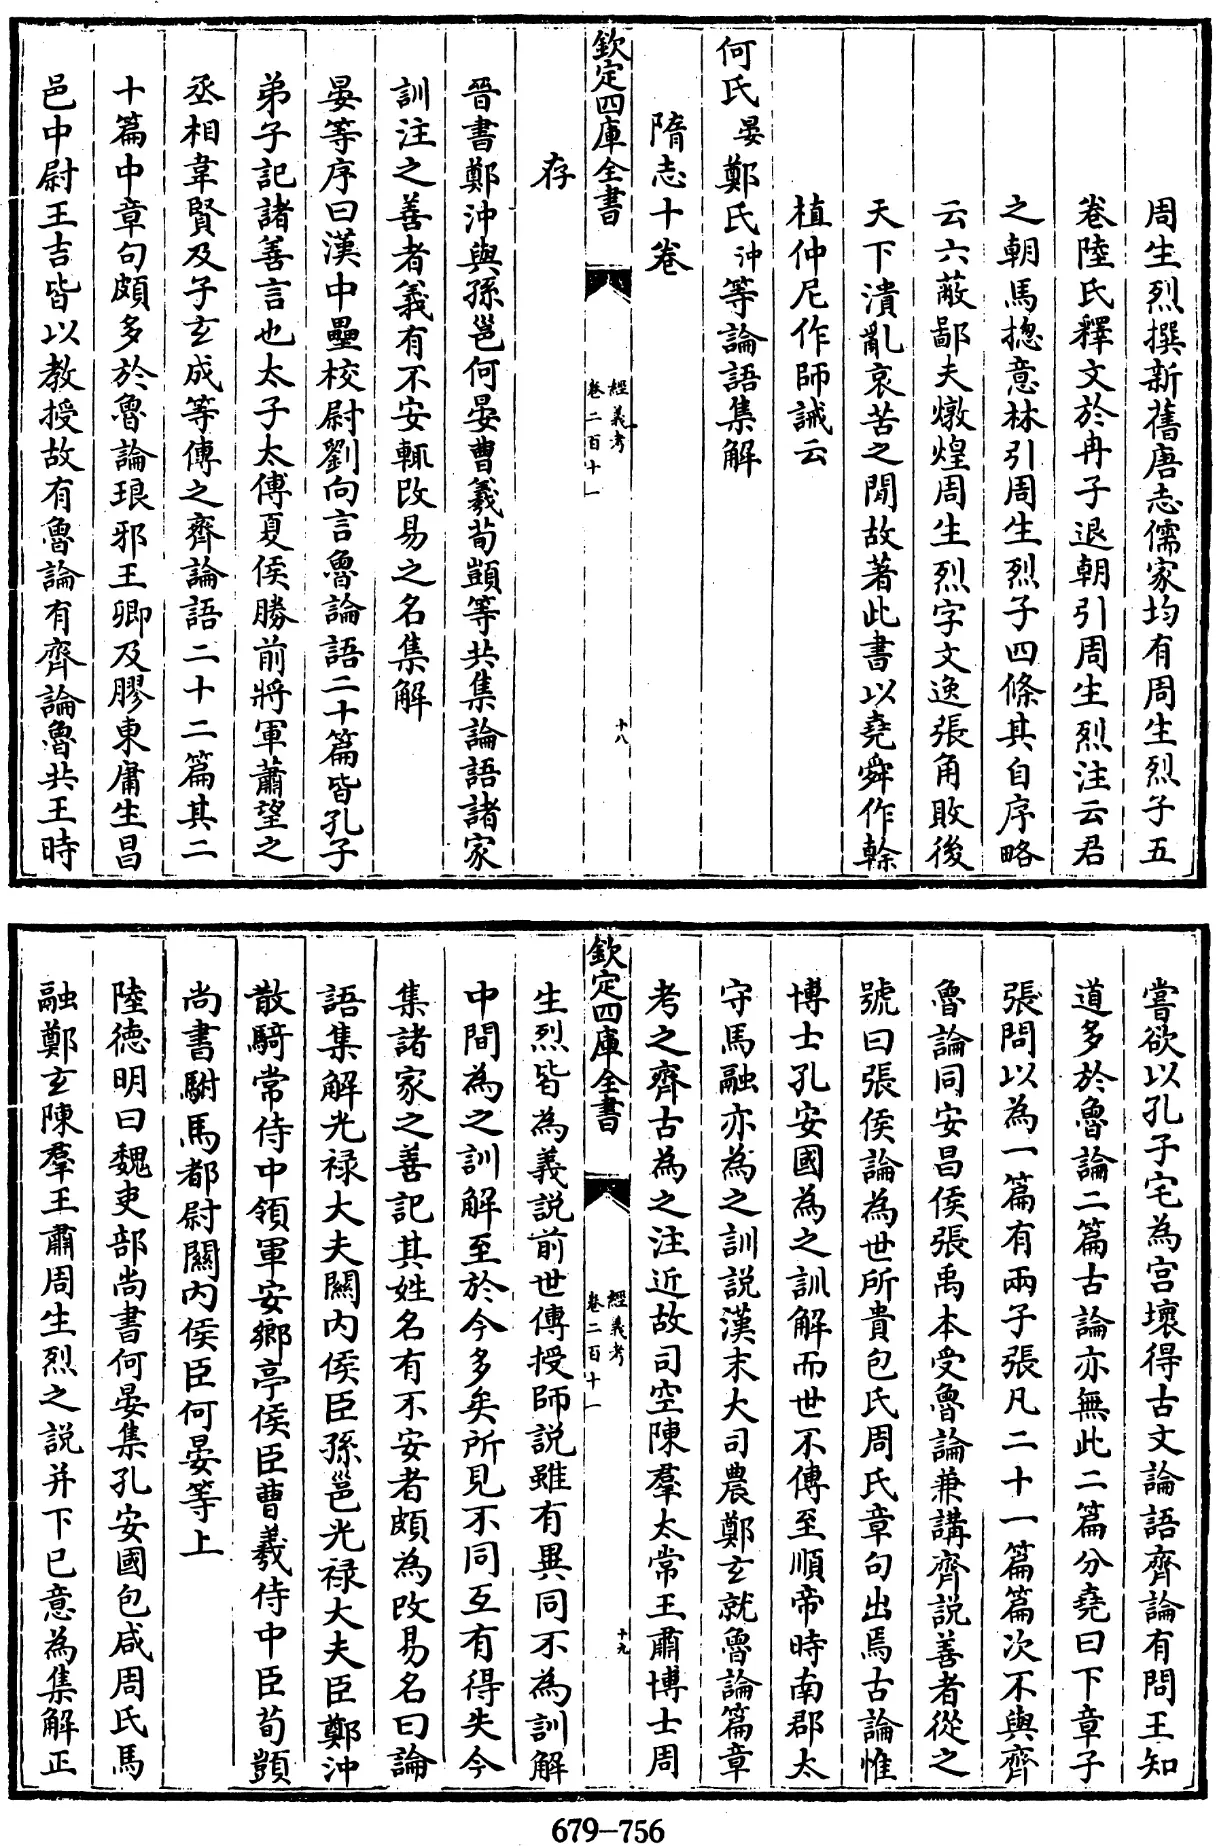 周生烈撰新舊唐志儒家均有周生烈子五
卷陸氏釋文於冉子退朝引周生烈注云君
之朝馬摠意林引周生烈子四條其自序略
云六蔽鄙夫燉煌周生烈字文逸張角敗後
天下潰亂哀苦之間故著此書以堯舜作幹
植仲尼作師誡云
何氏晏鄭氏沖等論語集解
隋志十卷
欽定四庫全書 經義考 卷二百十一 十八
存
晉書鄭沖與孫邕何晏曹羲荀顗等共集論語諸家
訓注之善者義有不安輒改易之名集解
晏等序曰漢中壘校尉劉向言魯論語二十篇皆孔子
弟子記諸善言也太子太傅夏侯勝前將軍蕭望之
丞相韋賢及子玄成等傳之齊論語二十二篇其二
十篇中章句頗多於魯論琅邪王卿及膠東庸生昌
邑中尉王吉皆以教授故有魯論有齊論魯共王時
嘗欲以孔子宅為宫壞得古文論語齊論有問王知
道多於魯論二篇古論亦無此二篇分堯曰下章子
張問以為一篇有兩子張凡二十一篇篇次不與齊
魯論同安昌侯張禹本受魯論兼講齊說善者從之
號曰張侯論為世所貴包氏周氏章句出焉古論惟
博士孔安國為之訓解而世不傳至順帝時南郡太
守馬融亦為之訓說漢末大司農鄭玄就魯論篇章
考之齊古為之注近故司空陳羣太常王肅博士周
欽定四庫全書 經義考 卷二百十一 十九
生烈皆為義說前世傳授師說雖有異同不為訓解
中間為之訓解至於今多矣所見不同互有得失今
集諸家之善記其姓名有不安者頗為改易名曰論
語集解光禄大夫關内侯臣孫邕光禄大夫臣鄭沖
散騎常侍中領軍安鄉亭侯臣曹羲侍中臣荀顗
尚書駙馬都尉關内侯臣何晏等上
陸德明曰魏吏部尚書何晏集孔安國包咸周氏馬
融鄭玄陳羣王肅周生烈之說并下己意為集解正
679-756